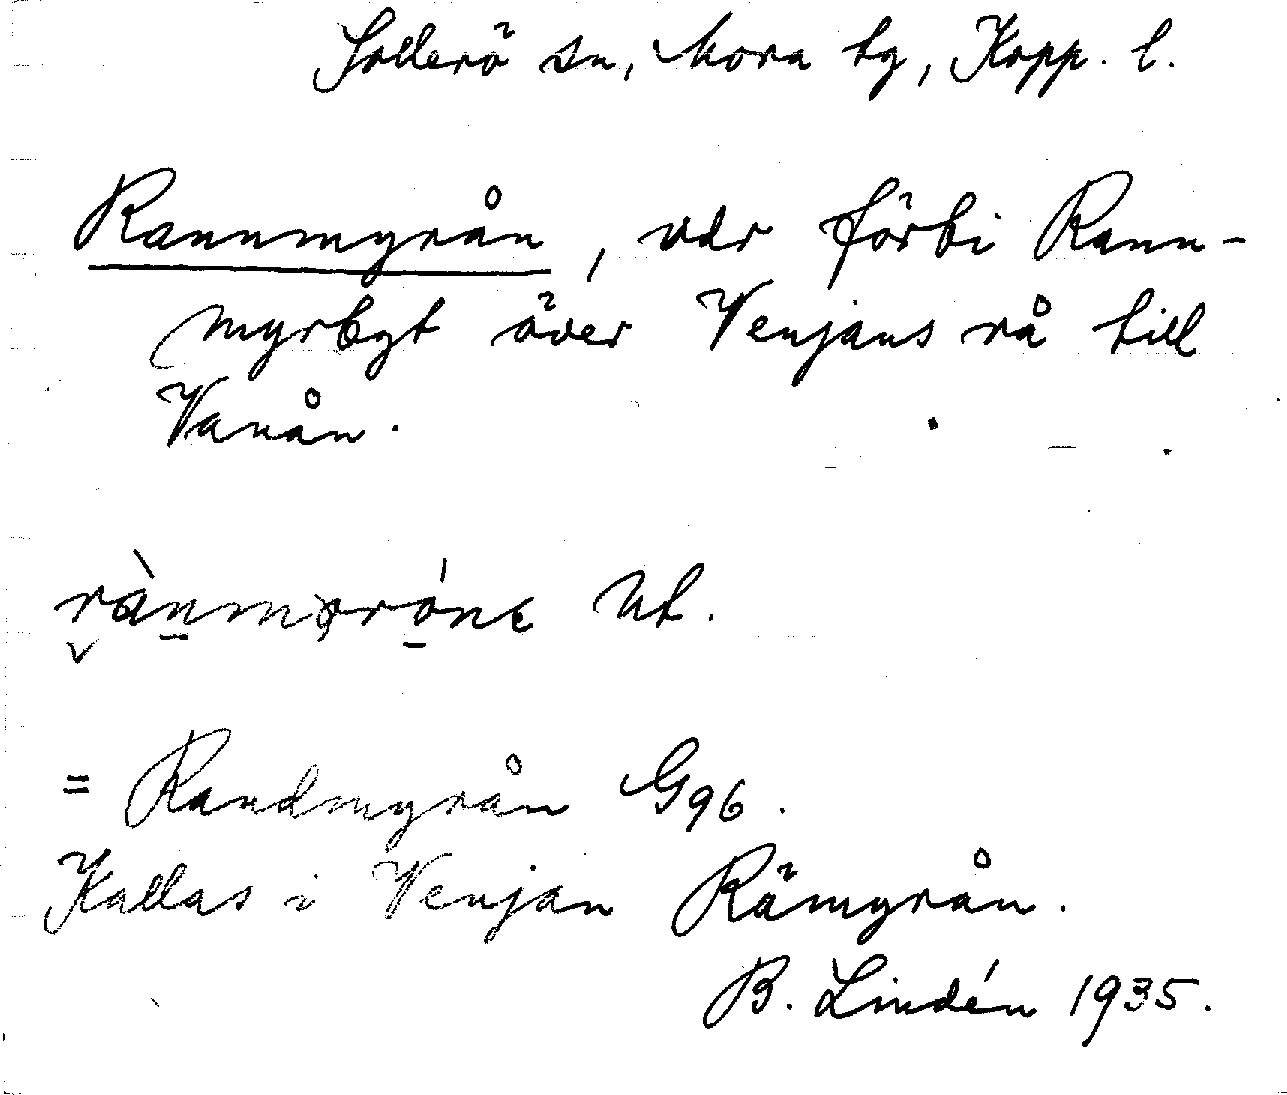 Sollerö sn, Mora tg, Kopp. l.
Rannmyrån, vdr förbi Rann-
myrbgt över Venjans rå till
Vanån.
Ut.
= Randmyrån G96.
Kallas i Venjan Rämyrån.
B. Lindén 1935.